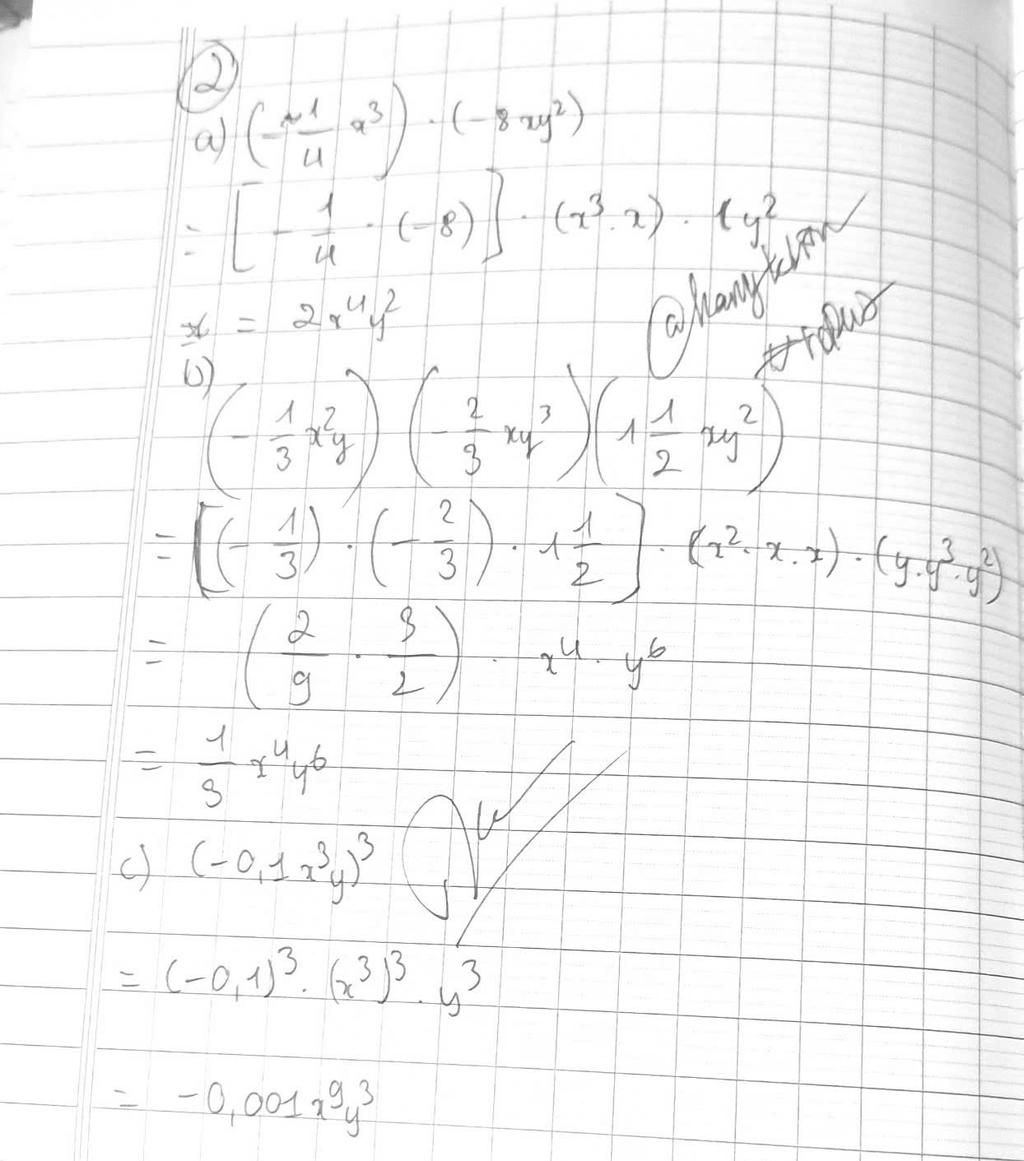 2
a) (-1/4 x³) . (-8xy²)
= [-1/4 . (-8)] . (x³.x) . y²
= 2x⁴y²
b)
(-1/3 x²y) (-2/3 xy³) (1 1/2 xy²)
= [(-1/3) . (-2/3) . 1 1/2] . (x².x.x) . (y.y³.y²)
= (2/9 . 3/2) . x⁴ . y⁶
= 1/3 x⁴y⁶
c) (-0,1x³y)³
= (-0,1)³ . (x³)³ . y³
= -0,001x⁹y³